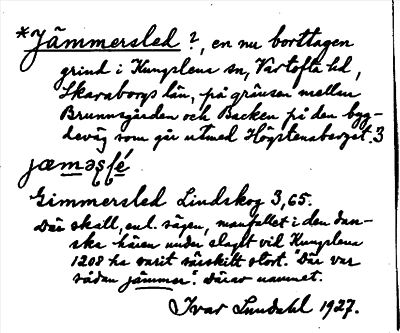 *Jämmersled ?, en nu borttagen
grind i Kungslena sn, Vartofta hd,
Skaraborgs län, på gränsen mellan
Brunnsgården och Backen på den byg-
deväg som går utmed Högstensberget. 3
Gimmersled Lindskog 3,65.
Där skall, enl. sägen, manfallet i den dan-
ska hären under slaget vid Kungslena
1208 ha varit särskilt stort. "Där var
sådan jämmer". Därav namnet.
Ivar Lundahl 1927.